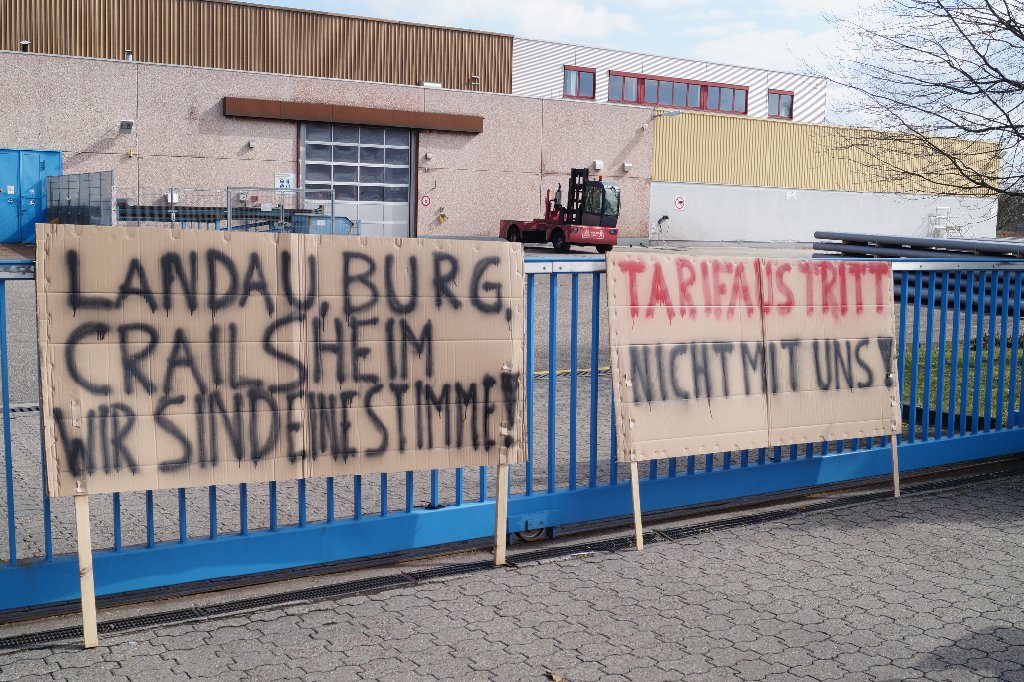 LANDAU, BURG,
CRAILSHEIM
WIR SIND EINE STIMME!
TARIFAUSTRITT
NICHT MIT UNS!